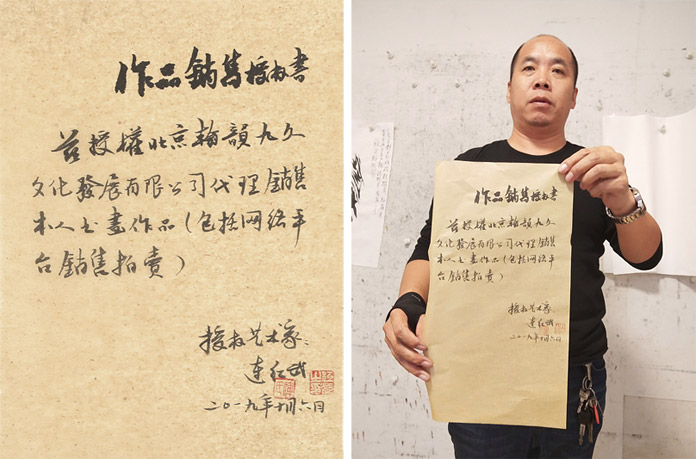 作品銷售授权書
兹授權北京翰韻九久
文化發展有限公司代理銷售
本人书畫作品（包括网络平
台銷售拍賣）
授权艺术家：
連红武
二〇一九年十月六日
作品銷售授权書
兹授權北京翰韻九久
文化發展有限公司代理銷售
本人书畫作品（包括网络平
台銷售拍賣）
授权艺术家：
連红武
二〇一九年十月六日